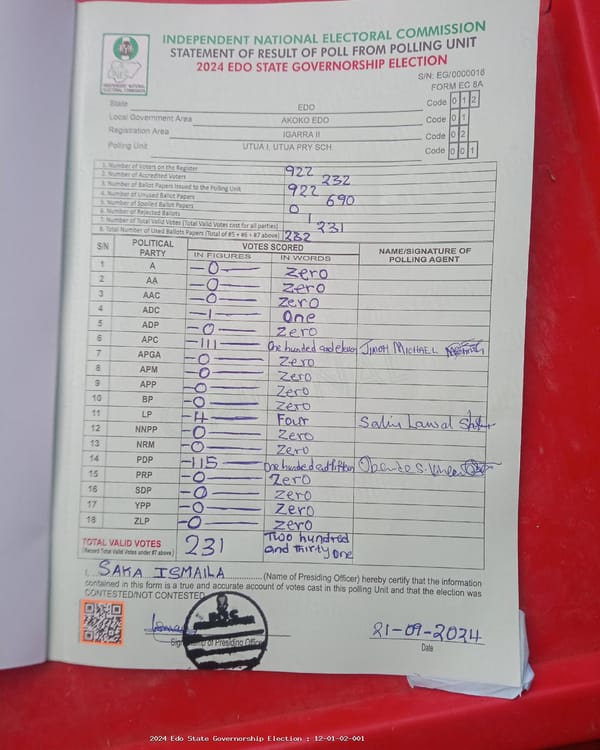 INDEPENDENT NATIONAL ELECTORAL COMMISSION
STATEMENT OF RESULT OF POLL FROM POLLING UNIT
2024 EDO STATE GOVERNORSHIP ELECTION
INDEPENDENT NATIONAL ELECTORAL COMMISSION
S/N: EG/0000016
FORM EC 8A
State EDO Code 0 1 2
Local Government Area AKOKO EDO Code 0 1
Registration Area IGARRA II Code 0 2
Polling Unit UTUA I, UTUA PRY SCH. Code 0 0 1
1. Number of Voters on the Register 922
2. Number of Accredited Voters 232
3. Number of Ballot Papers Issued to the Polling Unit 922
4. Number of Unused Ballot Papers 690
5. Number of Spoiled Ballot Papers 0
6. Number of Rejected Ballots 1
7. Number of Total Valid Votes (Total Valid Votes cast for all parties) 231
8. Total Number of Used Ballots Papers (Total of #5 + #6 + #7 above) 232
S/N POLITICAL PARTY VOTES SCORED NAME/SIGNATURE OF POLLING AGENT
IN FIGURES IN WORDS
1 A -0- Zero
2 AA -0- Zero
3 AAC -0- Zero
4 ADC -1- One
5 ADP -0- Zero
6 APC -111- One hundred and eleven JIMOH MICHAEL
7 APGA -0- Zero
8 APM -0- Zero
9 APP -0- Zero
10 BP -0- Zero
11 LP -4- Four Salis Lawal
12 NNPP -0- Zero
13 NRM -0- Zero
14 PDP -115- One hundred and fifteen
15 PRP -0- Zero
16 SDP -0- Zero
17 YPP -0- Zero
18 ZLP -0- Zero
TOTAL VALID VOTES 231 Two hundred and thirty one
(Record Total Valid Votes under #7 above)
I, SAKA ISMAILA (Name of Presiding Officer) hereby certify that the information
contained in this form is a true and accurate account of votes cast in this polling Unit and that the election was
CONTESTED/NOT CONTESTED
Signature of Presiding Officer
21-09-2024
Date
2024 Edo State Governorship Election : 12-01-02-001